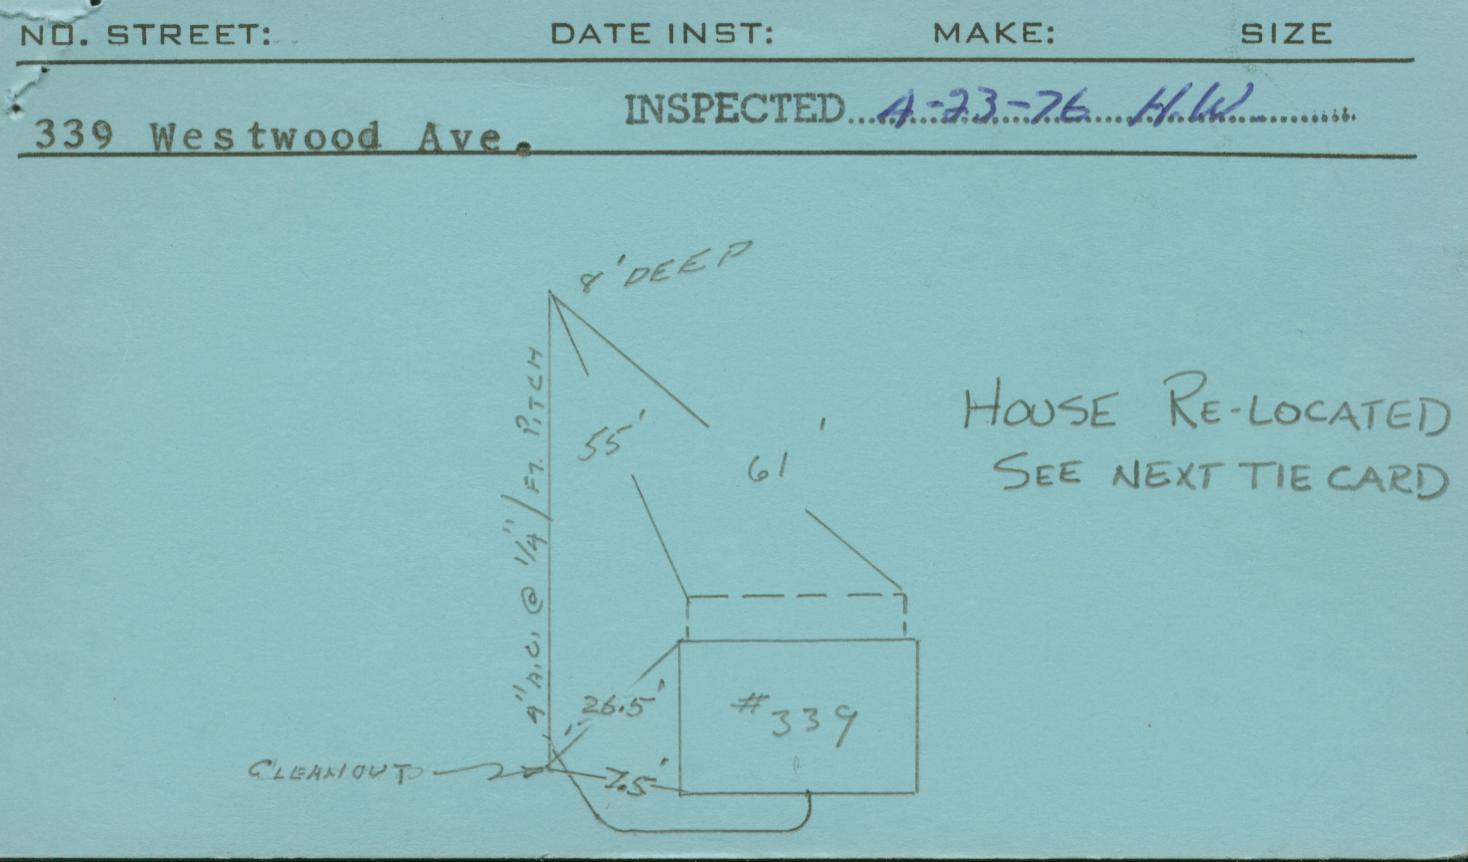 NO. STREET: DATE INST: MAKE: SIZE
INSPECTED 4-23-76 H.W.
339 Westwood Ave.
8' DEEP
HOUSE RE-LOCATED
SEE NEXT TIE CARD
55'
61'
4" A.C. @ 1/4" / FT. PITCH
26.5'
#339
CLEANOUT
7.5'